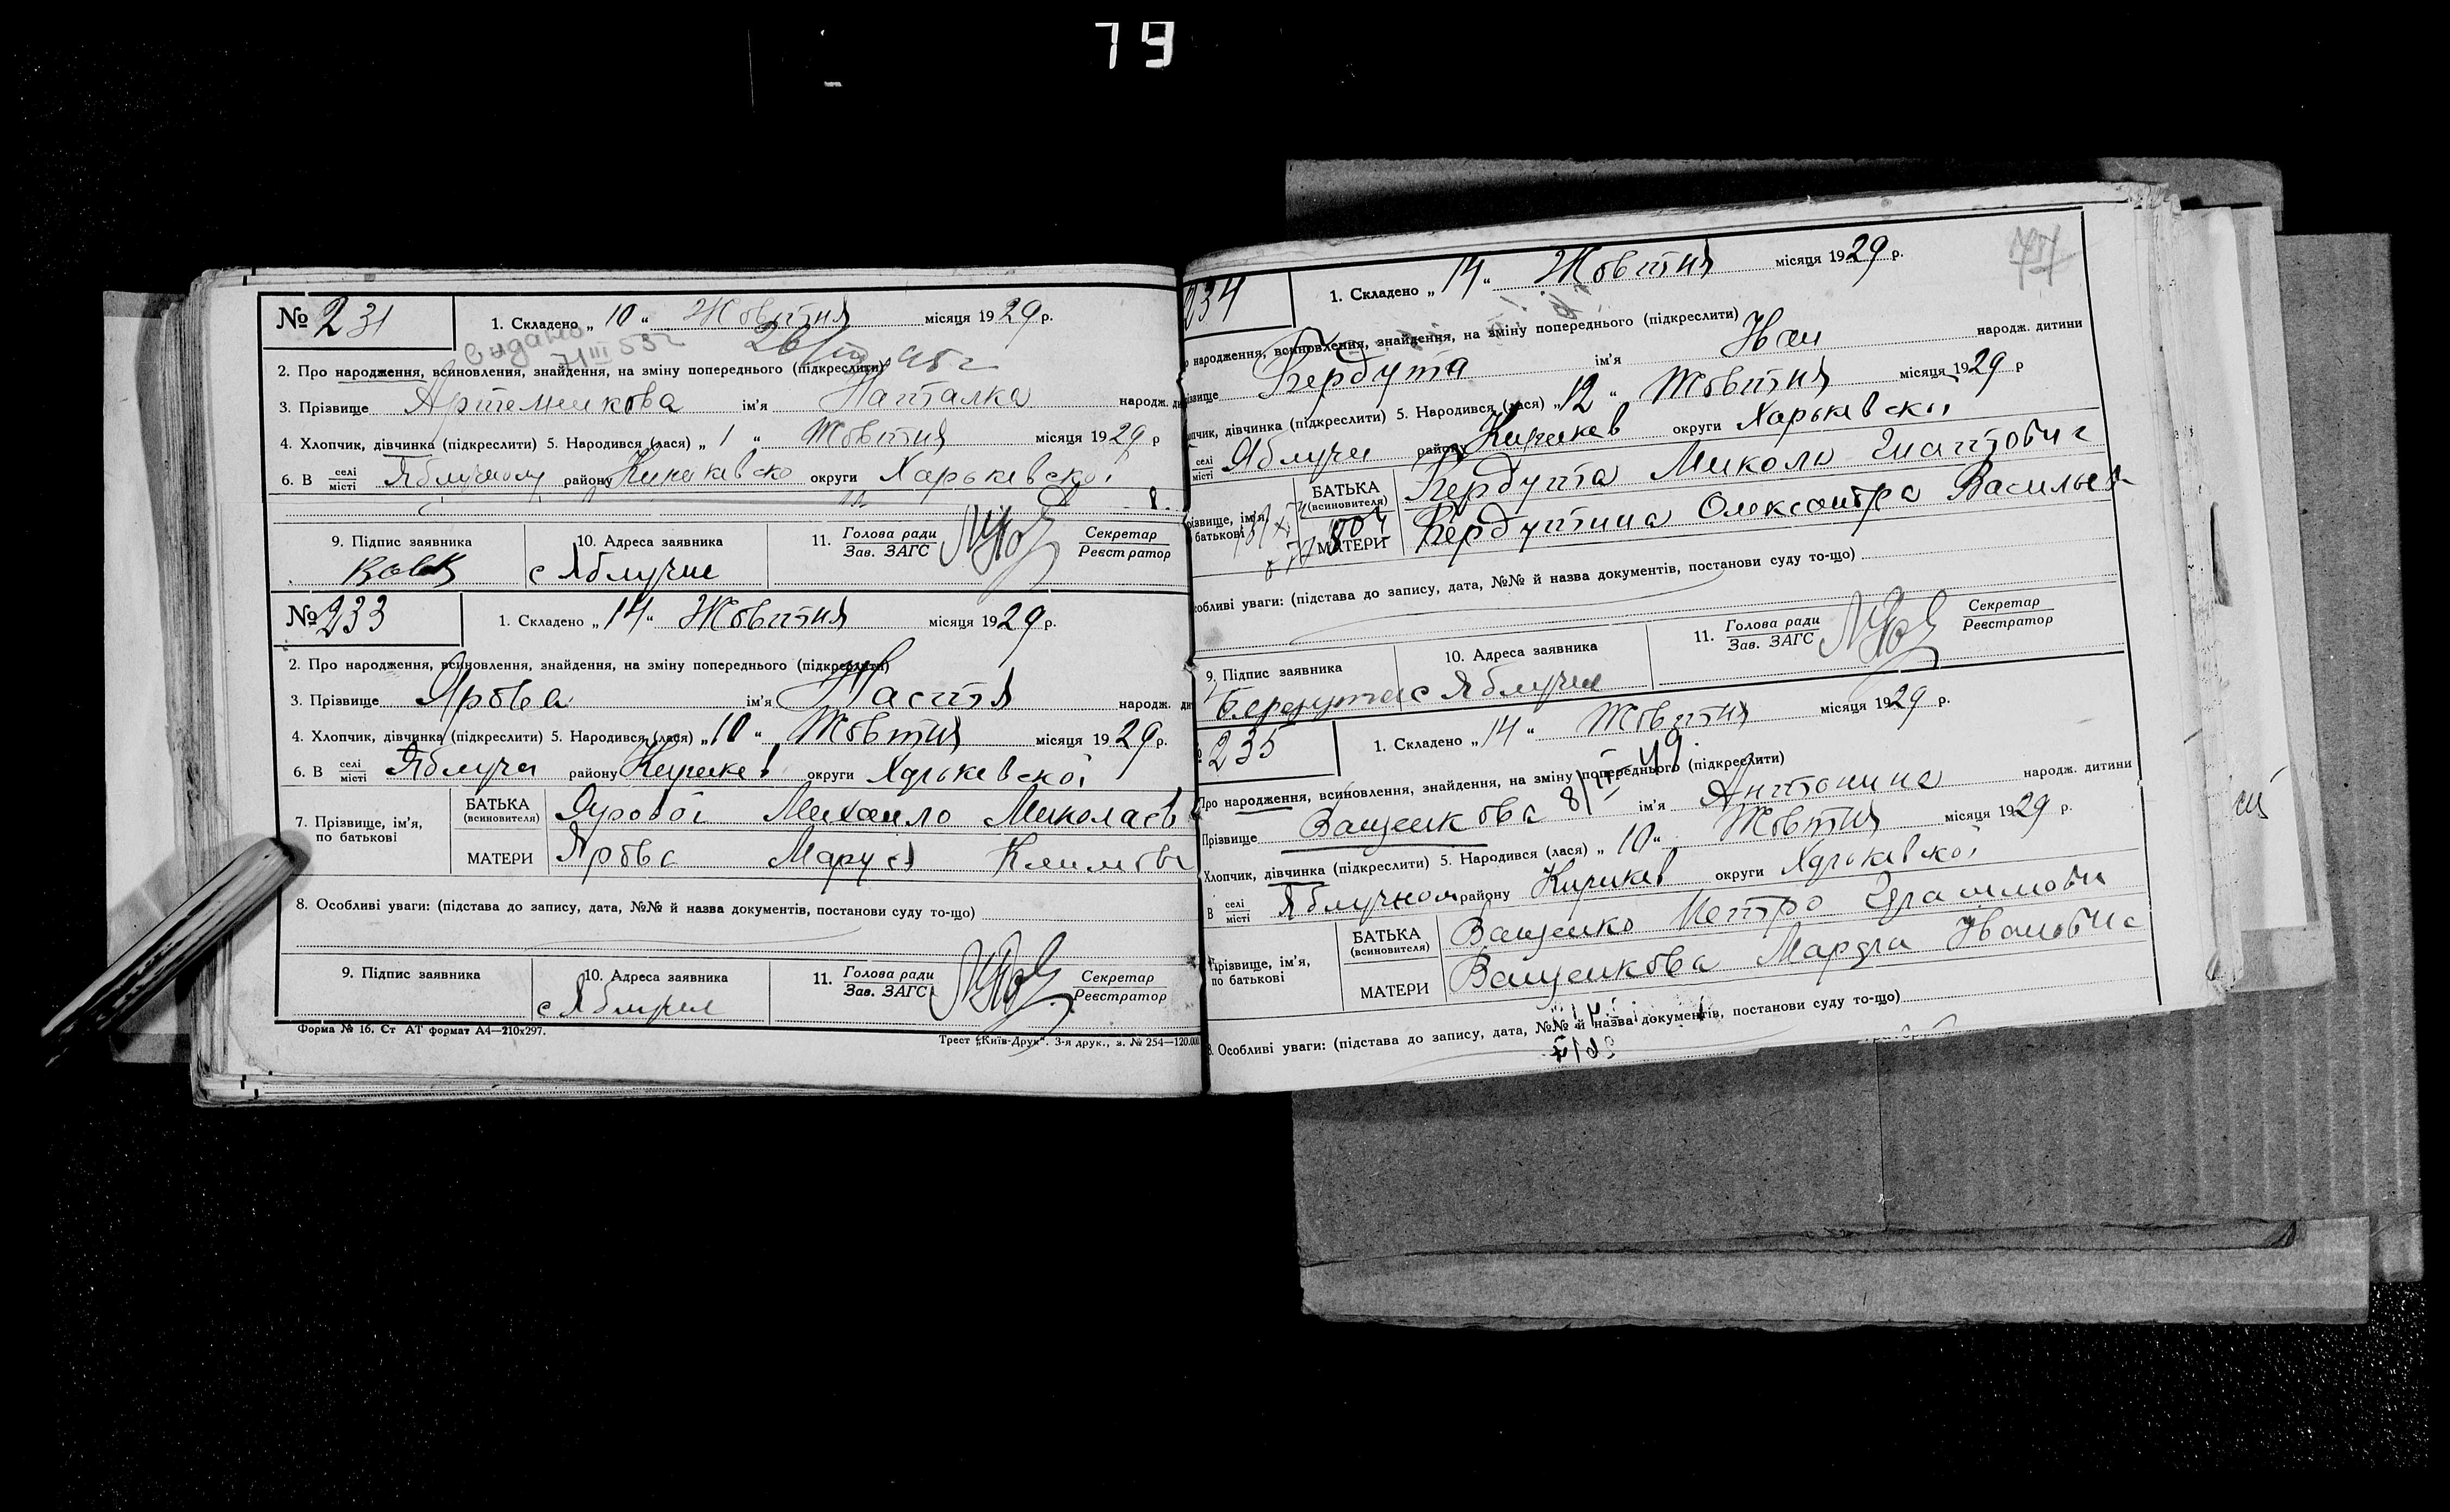 79
№ 231
1. Складено „ 10 “ Жовтня місяця 1929 р.
видано 7/III 53 г
26/ 45 г
2. Про народження, всиновлення, знайдення, на зміну попереднього (підкреслити)
3. Прізвище Артеменкова ім'я Натталка народж. ди
4. Хлопчик, дівчинка (підкреслити) 5. Народився (лася) „ 1 “ Жовтня місяця 1929 р
6. В селі/місті Яблучному району округи Харькевської
9. Підпис заявника
10. Адреса заявника
с Яблучне
11. Голова ради
Зав. ЗАГС
Секретар
Реєстратор
№ 233
1. Складено „ 14 “ Жовтня місяця 1929 р.
2. Про народження, всиновлення, знайдення, на зміну попереднього (підкреслити)
3. Прізвище Ярова ім'я Настя народж. ди
4. Хлопчик, дівчинка (підкреслити) 5. Народився (лася) „ 10 “ Жовтня місяця 1929 р.
6. В селі/місті Яблучн району Кириков округи Харькевської
7. Прізвище, ім'я, по батькові
БАТЬКА (всиновителя) Яровой Михаило Миколаєв
МАТЕРИ Ярова Маруся Климовн
8. Особливі уваги: (підстава до запису, дата, №№ й назва документів, постанови суду то-що)
9. Підпис заявника
10. Адреса заявника
с Яблучне
11. Голова ради
Зав. ЗАГС
Секретар
Реєстратор
Форма № 16. Ст АТ формат А4—210х297.
Трест „Київ-Друк“. 3-я друк., з. № 254—120.00
234
1. Складено „ 14 “ Жовтня місяця 1929 р.
о народження, всиновлення, знайдення, на зміну попереднього (підкреслити)
ізвище Бердута ім'я Иван народж. дитини
опчик, дівчинка (підкреслити) 5. Народився (лася) „ 12 “ Жовтня місяця 1929 р
селі/місті Яблучн району Кириков округи Харькевської
різвище, ім'я, батькові
БАТЬКА (всиновителя) Бердута Микола Гнаттович
МАТЕРИ Бердутина Олександра Васильев
собливі уваги: (підстава до запису, дата, №№ й назва документів, постанови суду то-що)
9. Підпис заявника
10. Адреса заявника
с Яблучне
11. Голова ради
Зав. ЗАГС
Секретар
Реєстратор
235
1. Складено „ 14 “ Жовтня місяця 1929 р.
Про народження, всиновлення, знайдення, на зміну попереднього (підкреслити)
Прізвище Ващенкова ім'я Антонина народж. дитини
Хлопчик, дівчинка (підкреслити) 5. Народився (лася) „ 10 “ Жовтня місяця 1929 р.
В селі/місті Яблучном району Кириков округи Харькевської
Прізвище, ім'я, по батькові
БАТЬКА (всиновителя) Ващенко Петро
МАТЕРИ Ващенкова Марфа Ивановна
8. Особливі уваги: (підстава до запису, дата, №№ й назва документів, постанови суду то-що)